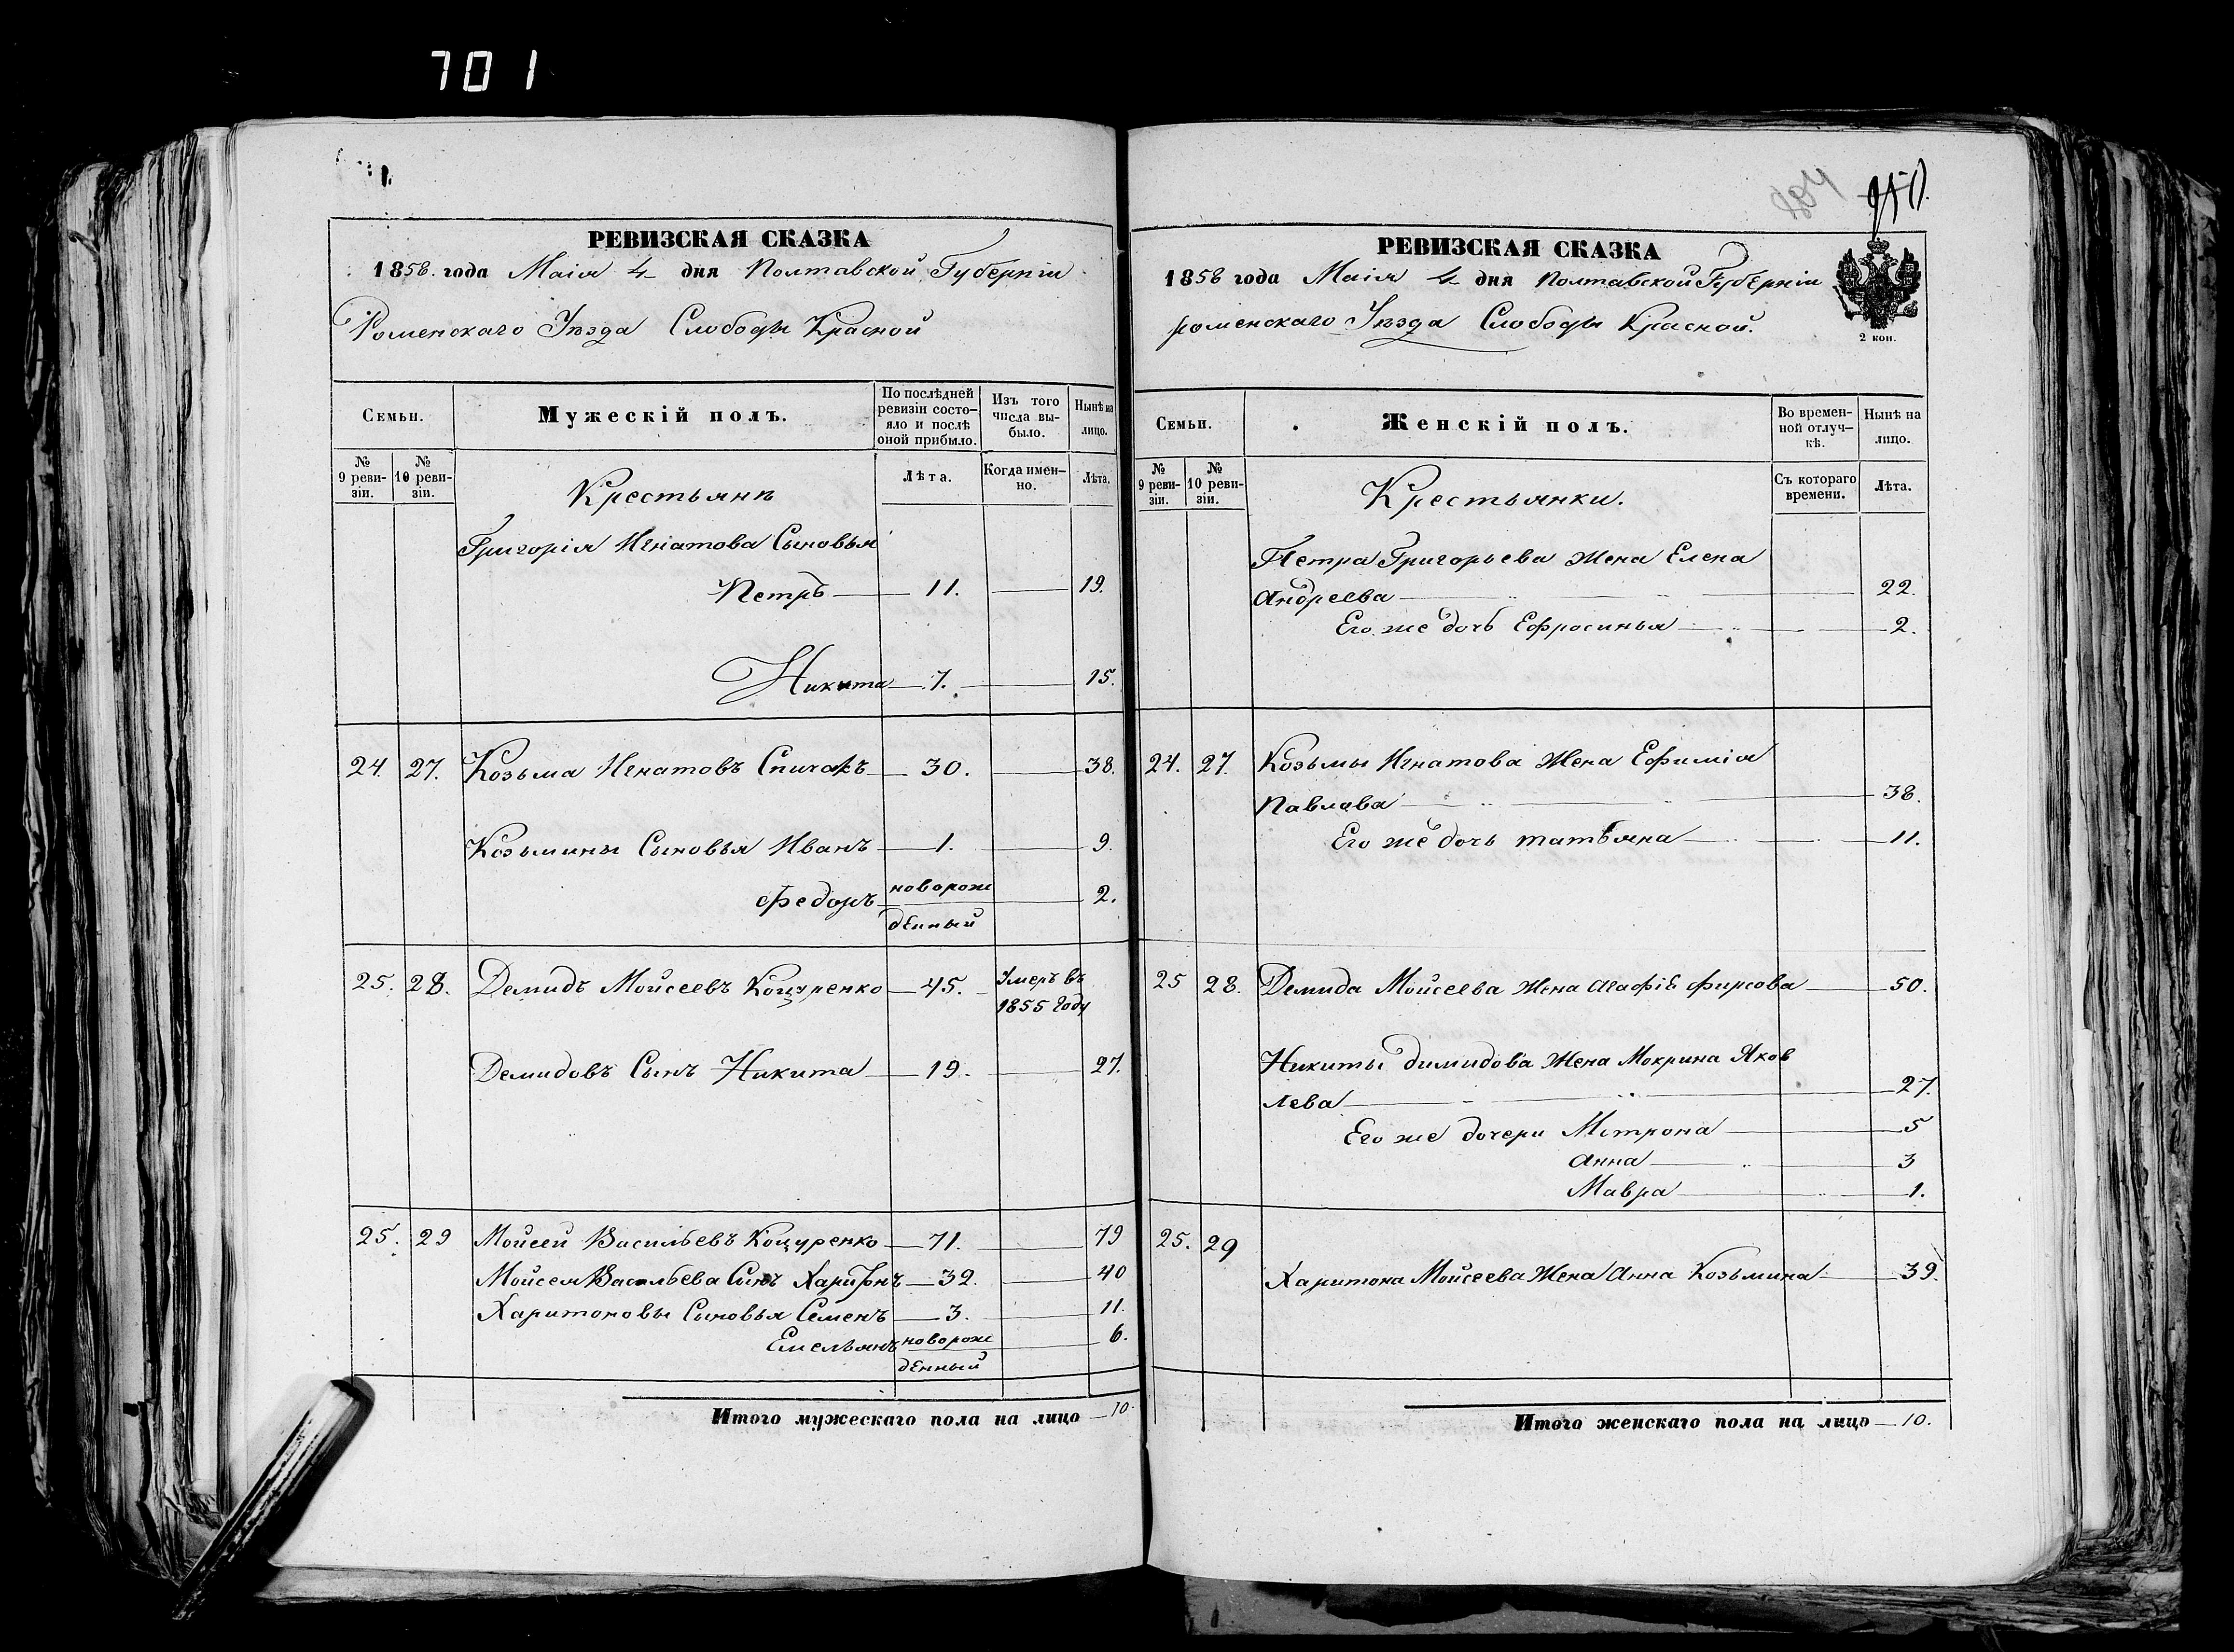 701
РЕВИЗСКАЯ СКАЗКА
1858. года Маія 4 дня Полтавской Губерніи
Роменскаго Уѣзда Слободы Красной
Семьи.
Мужескій полъ.
По послѣдней ревизіи состо-
яло и послѣ
оной прибыло.
Изъ того
числа вы-
было.
Нынѣ на
лицо.
№
9 реви-
зіи.
№
10 реви-
зіи.
Крестьянѣ
Лѣта.
Когда имен-
но.
Лѣта.
Григорія Игнатова Сыновья
Петръ 11. 19.
Никита 7. 15.
24. 27. Козьма Игнатовъ Спичакъ 30. 38.
Козьмины Сыновья Иванъ 1. 9.
Федоръ новорож
денный 2.
25. 28. Демидъ Мойсеевъ Коцуренко 45. Умеръ въ
1855 году
Демидовъ Сынъ Никита 19. 27.
25. 29 Мойсей Васильевъ Коцуренко 71. 79
Мойсея Васильева Сынъ Харитонъ 32. 40
Харитоновы Сыновья Семенъ 3. 11.
Емельянъ новорож
денный 6.
Итого мужескаго пола на лицо 10.
950.
РЕВИЗСКАЯ СКАЗКА
1858 года Маія 4 дня Полтавской Губерніи
роменскаго Уѣзда Слободы Красной.
2 коп.
Семьи.
Женскій полъ.
Во времен-
ной отлуч-
кѣ.
Нынѣ на
лицо.
№
9 реви-
зіи.
№
10 реви-
зіи.
Крестьянки.
Съ котораго
времени.
Лѣта.
Петра Григорьева Жена Елена
Андреева 22.
Его же дочь Ефросинья 2.
24. 27. Козьмы Игнатова Жена Ефимія
Павлова 38.
Его же дочь татьяна 11.
25 28. Демида Мойсеева Жена Агафія фирсова 50.
Никиты димидова Жена Мокрина Яков
лева 27.
Его же дочери Мотрона 5
Анна 3
Мавра 1.
25. 29
Харитона Мойсеева Жена Анна Козьмина 39.
Итого женскаго пола на лицо 10.